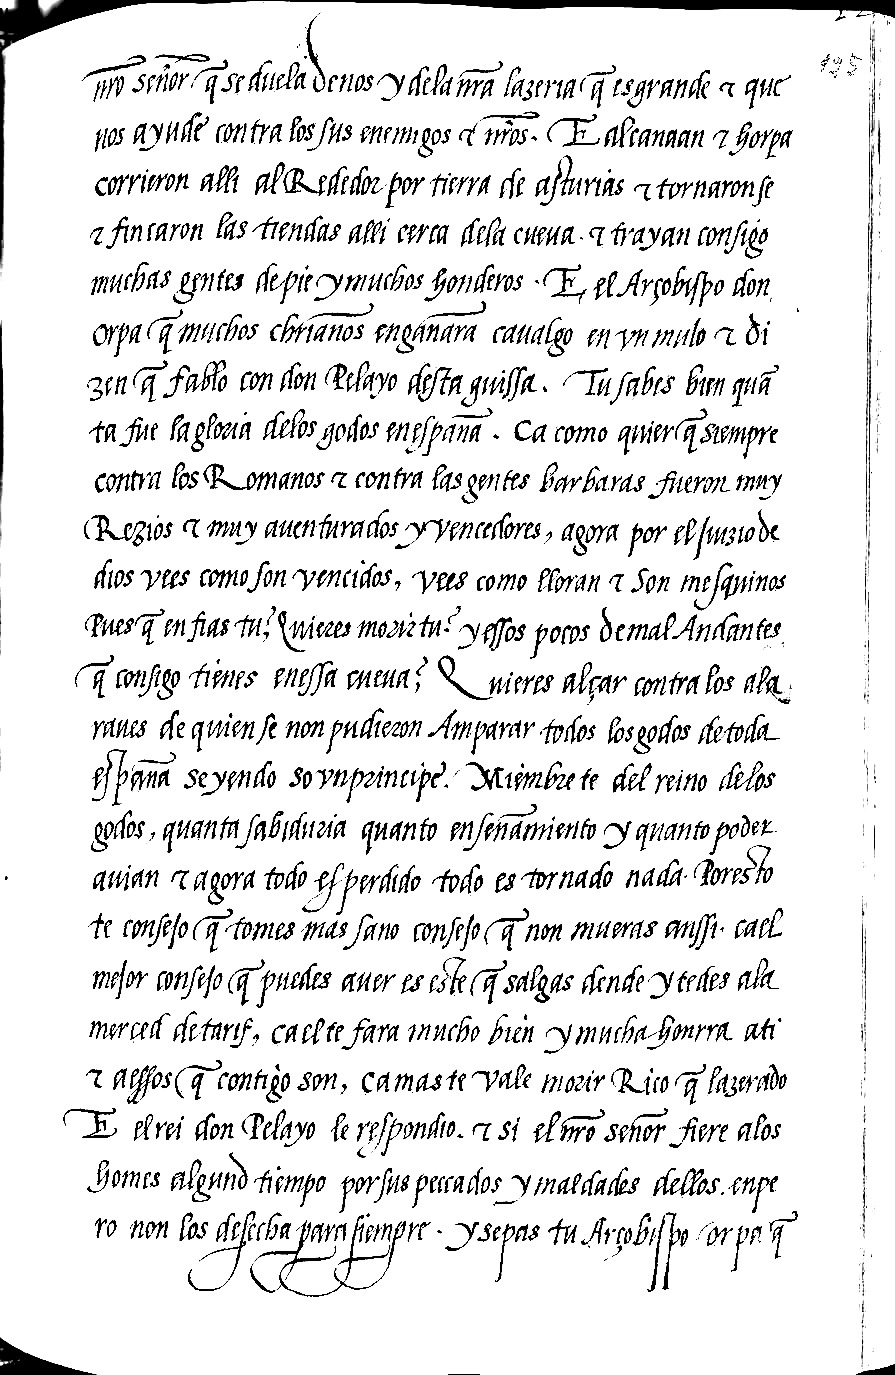 195
nr̃o señor q̃ se duela de nos y de la nr̃a lazeria q̃ es grande τ que
nos ayude contra los sus enemigos τ nr̃os. E alcanaan τ horpa
corrieron alli al Rededor por tierra de asturias τ tornaronse
τ fincaron las tiendas alli cerca de la cueua. τ trayan consigo
muchas gentes de pie y muchos honderos. E, el Arçobispo don
orpa q̃ muchos chrianos engañara caualgo en vn mulo τ di
zen q̃ fablo con don Pelayo desta guissa. Tu sabes bien quã
ta fue la gloria de los godos en españa. Ca como quier q̃ siempre
contra los Romanos τ contra las gentes barbaras fueron muy
Rezios τ muy auenturados y vencedores, agora por el juizio de
dios vees como son vencidos, vees como lloran τ son mesquinos
Pues q̃ en fias tu? Quieres morir tu? y essos pocos de mal Andantes
q̃ consigo tienes en essa cueua? Quieres alçar contra los ala
raues de quien se non pudieron Amparar todos los godos de toda
españa seyendo so vn principe. Miembrete del reino de los
godos, quanta sabiduria quanto enseñamiento y quanto poder
auian τ agora todo es perdido todo es tornado nada. Por esto
te consejo q̃ tomes mas sano consejo q̃ non mueras anssi. ca el
mejor consejo q̃ puedes auer es este q̃ salgas dende y te des a la
merced de tarif, ca el te fara mucho bien y mucha honrra a ti
τ a essos q̃ contigo son, ca mas te vale morir Rico q̃ lazerado
E el rei don Pelayo le respondio. τ si el nr̃o señor fiere a los
homes algund tiempo por sus peccados y maldades dellos. enpe
ro non los desecha para siempre. y sepas tu Arçobispo orpa q̃